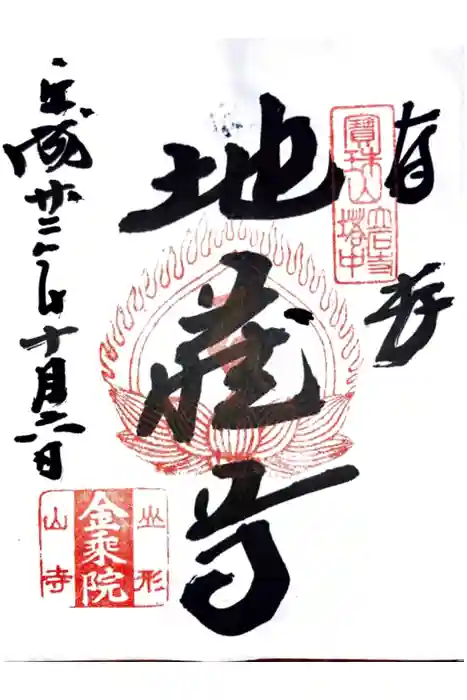 奉拝
寶珠山
立石寺
塔中
地蔵尊
平成廿二年十月六日
山形
金乗院
山寺